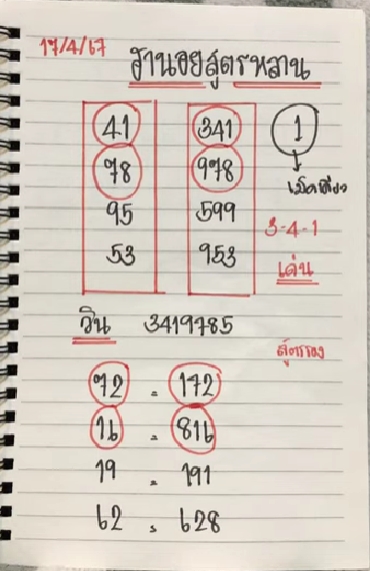 17/4/67
ฐานอยสูตรหลาน
41 341 1
78 978 เม็ดเดียว
95 599
3-4-1
53 953 เด่น
วิน 3419785
สูตรรอง
72 - 172
16 - 816
19 - 191
62 - 628